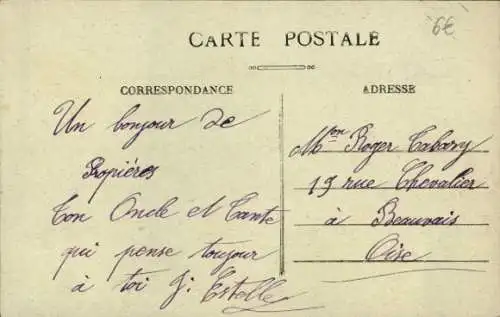 6€
CARTE POSTALE
CORRESPONDANCE
Un bonjour de
Propiéres
Ton Oncle et Tante
qui pense toujour
à toi J. Estelle
ADRESSE
Mon Roger Cabary
19 rue Chevalier
à Beauvais
Oise